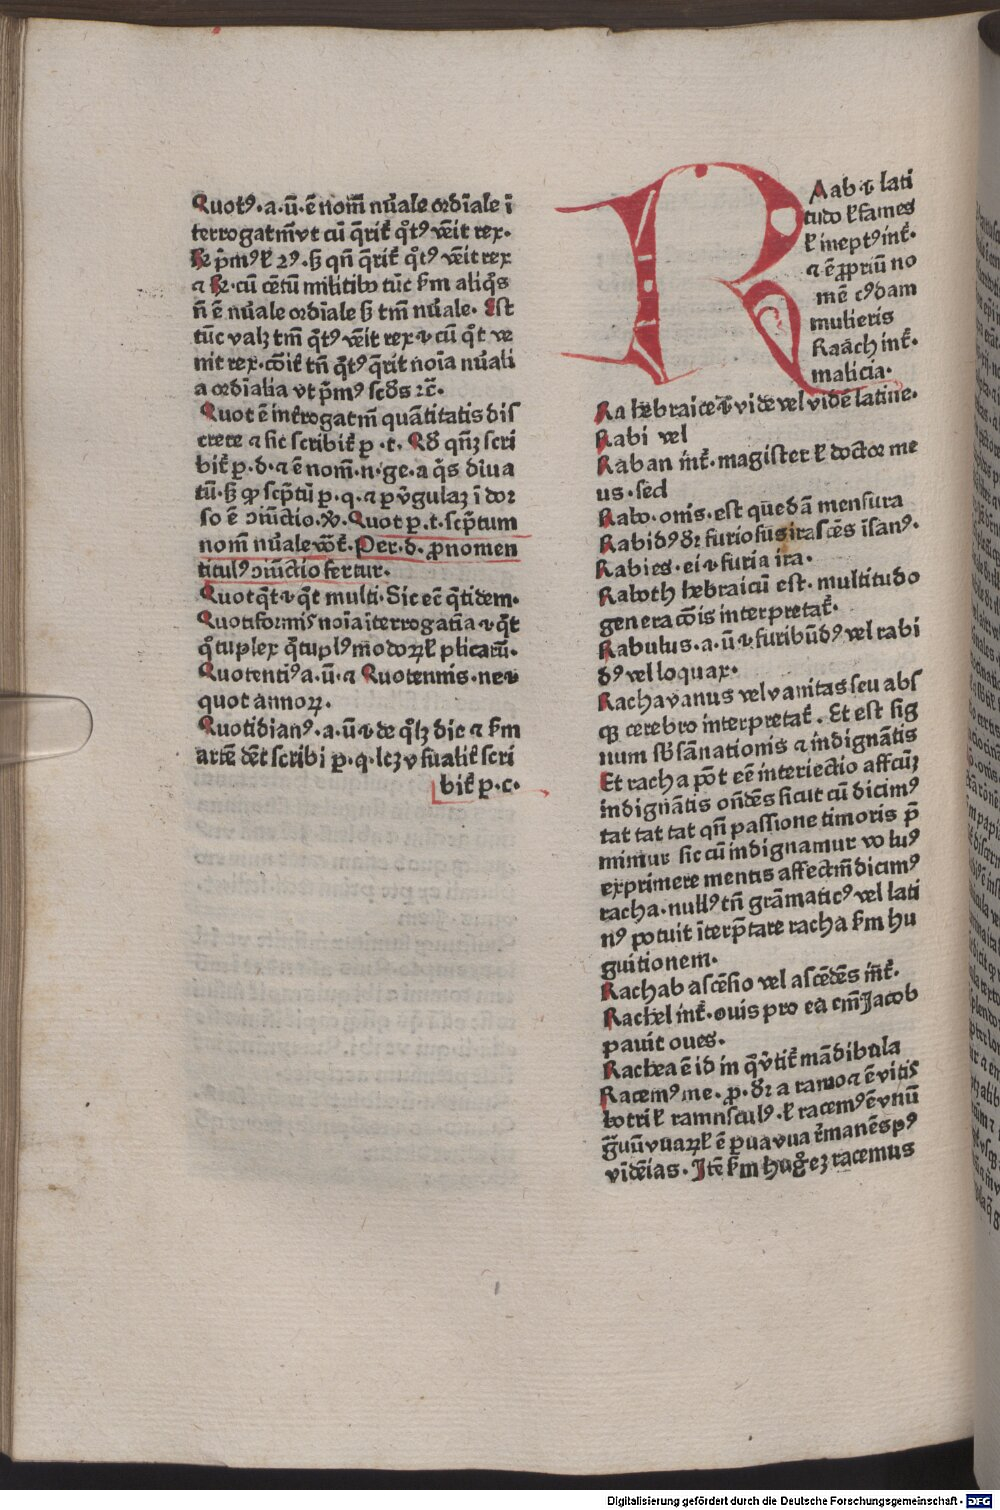 Quotꝰ·a·ū·ē nom̄ nūale ordīale ī
terrogatm̄ vt cū q̄rit̄ q̊tꝰ vēit rex·
p̄mꝰ ł 2ꝰ· ꝗn̄ q̄rit̄ q̊tꝰ vēit rex
cū cētū militibꝰ tūc ẜm aliq̊s
n̄ ē nūale ordīale ß tm̄ nūale· Est
tūc valꝫ tm̄ q̄tꝰ vēit rex ⁊ cū q̄t ve
nit rex· cōit̄ tn̄ q̄tꝰ q̄rit noīa nūali
a ordīalia vt p̄mꝰ scd̄s ⁊c̄·
Quot ē int̄rogatm̄ quātitatis dis
crete ⁊ sic scribit̄ ꝑ ·t· scri
bit̄ ꝑ·d·⁊ ē nom̄·n·ge·a q̊s diuа
tū· ß ꝙ scp̄tū ꝑ·q·⁊ ꝑ v̄gulaꝫ ī dor
so ē ɔiūctio· Quot ꝑ·t·scp̄tum
nom̄ nūale Per·d·ꝓnomen
titulꝰ ɔiūctio fertur·
Quotq̄t ⁊ q̄t multi· Sic eē q̄tidem·
Quotiformis noīa īterrogatīa ⁊ q̄t
q̊tuplex q̄tuplꝰ modoꝝ ł plicatū·
Quotentiꝰ a·ū·⁊ Quotennis·ne⁊
quot annoꝝ·
Quotidianꝰ·a·ū ⁊ de q̊lꝫ die ⁊ ẜm
artē dēt scribi ꝑ·q·lcꝫ vsualit̄ scri
bit̄ ꝑ·c·
Raab ⁊ lati
tudo ł fames
ł ineptꝰ int̄·
⁊ ē ꝓpriū no
mē cꝰdam
mulieris
Raāch int̄·
malicia·
Ra hebraice ⁊ vide vel vidē latine·
Rabi vel
Raban int̄·magister ł doctor me
us·sed
Rabo·onis·est quedā mensura
Rabidꝰ dr̄ furiosus irascēs īsanꝰ·
Rabies·ei ⁊ furia ira·
Raboth hebraicū est·multitudo
generacōis interpretat̄·
Rabulus·a·ū ⁊ furibūdꝰ vel rabi
dꝰ vel loquax·
Rachavanus vel vanitas seu abs
qꝫ cerebro interpretat̄·Et est sig
num sb̄sānationis ⁊ indignātis
Et racha pōt eē interiectio affcūꝫ
indignātis ondēs sicut cū dicimꝰ
tat tat tat qn̄ passione timoris p̄
mimur sic cū indignamur volꝰ
exprimere mentis affectm̄ dicimꝰ
racha·nullꝰ tn̄ grāmaticꝰ vel lati
nꝰ potuit īterp̄tare racha ẜm hu
guitionem·
Rachab ascēsio vel ascēdēs int̄·
Rachel int̄·ouis pro ea em̄ Jacob
pauit oues·
Rachea ē id in q̊ v̄tit̄ mādibula
Racemꝰ me·ꝓ·dr̄ a ramo ⁊ ē vitis
botri ł ramusculꝰ·ł racemꝰ ē vnū
g̊nū vuaꝝ ł ē ꝑua vua r̄manēs pꝰ
vīdēias·Itē ẜm hug̊ eꝫ racemus
Digitalisierung gefördert durch die Deutsche Forschungsgemeinschaft - DFG